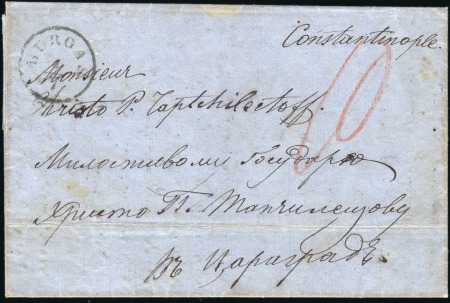 Constantinople.
Monsieur
Christo P. Taptchilectoff.
10
Милостивому Государю
Христо П. Тапчилещову
въ Цариградъ.